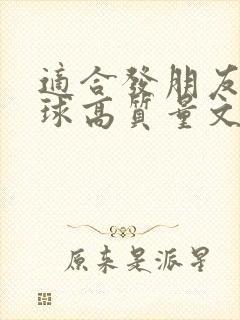 適合發朋友
球高質量文
原来是派星